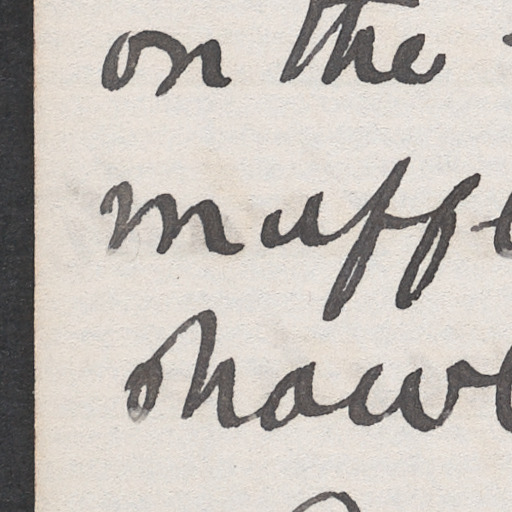 on the
muffl
shawl